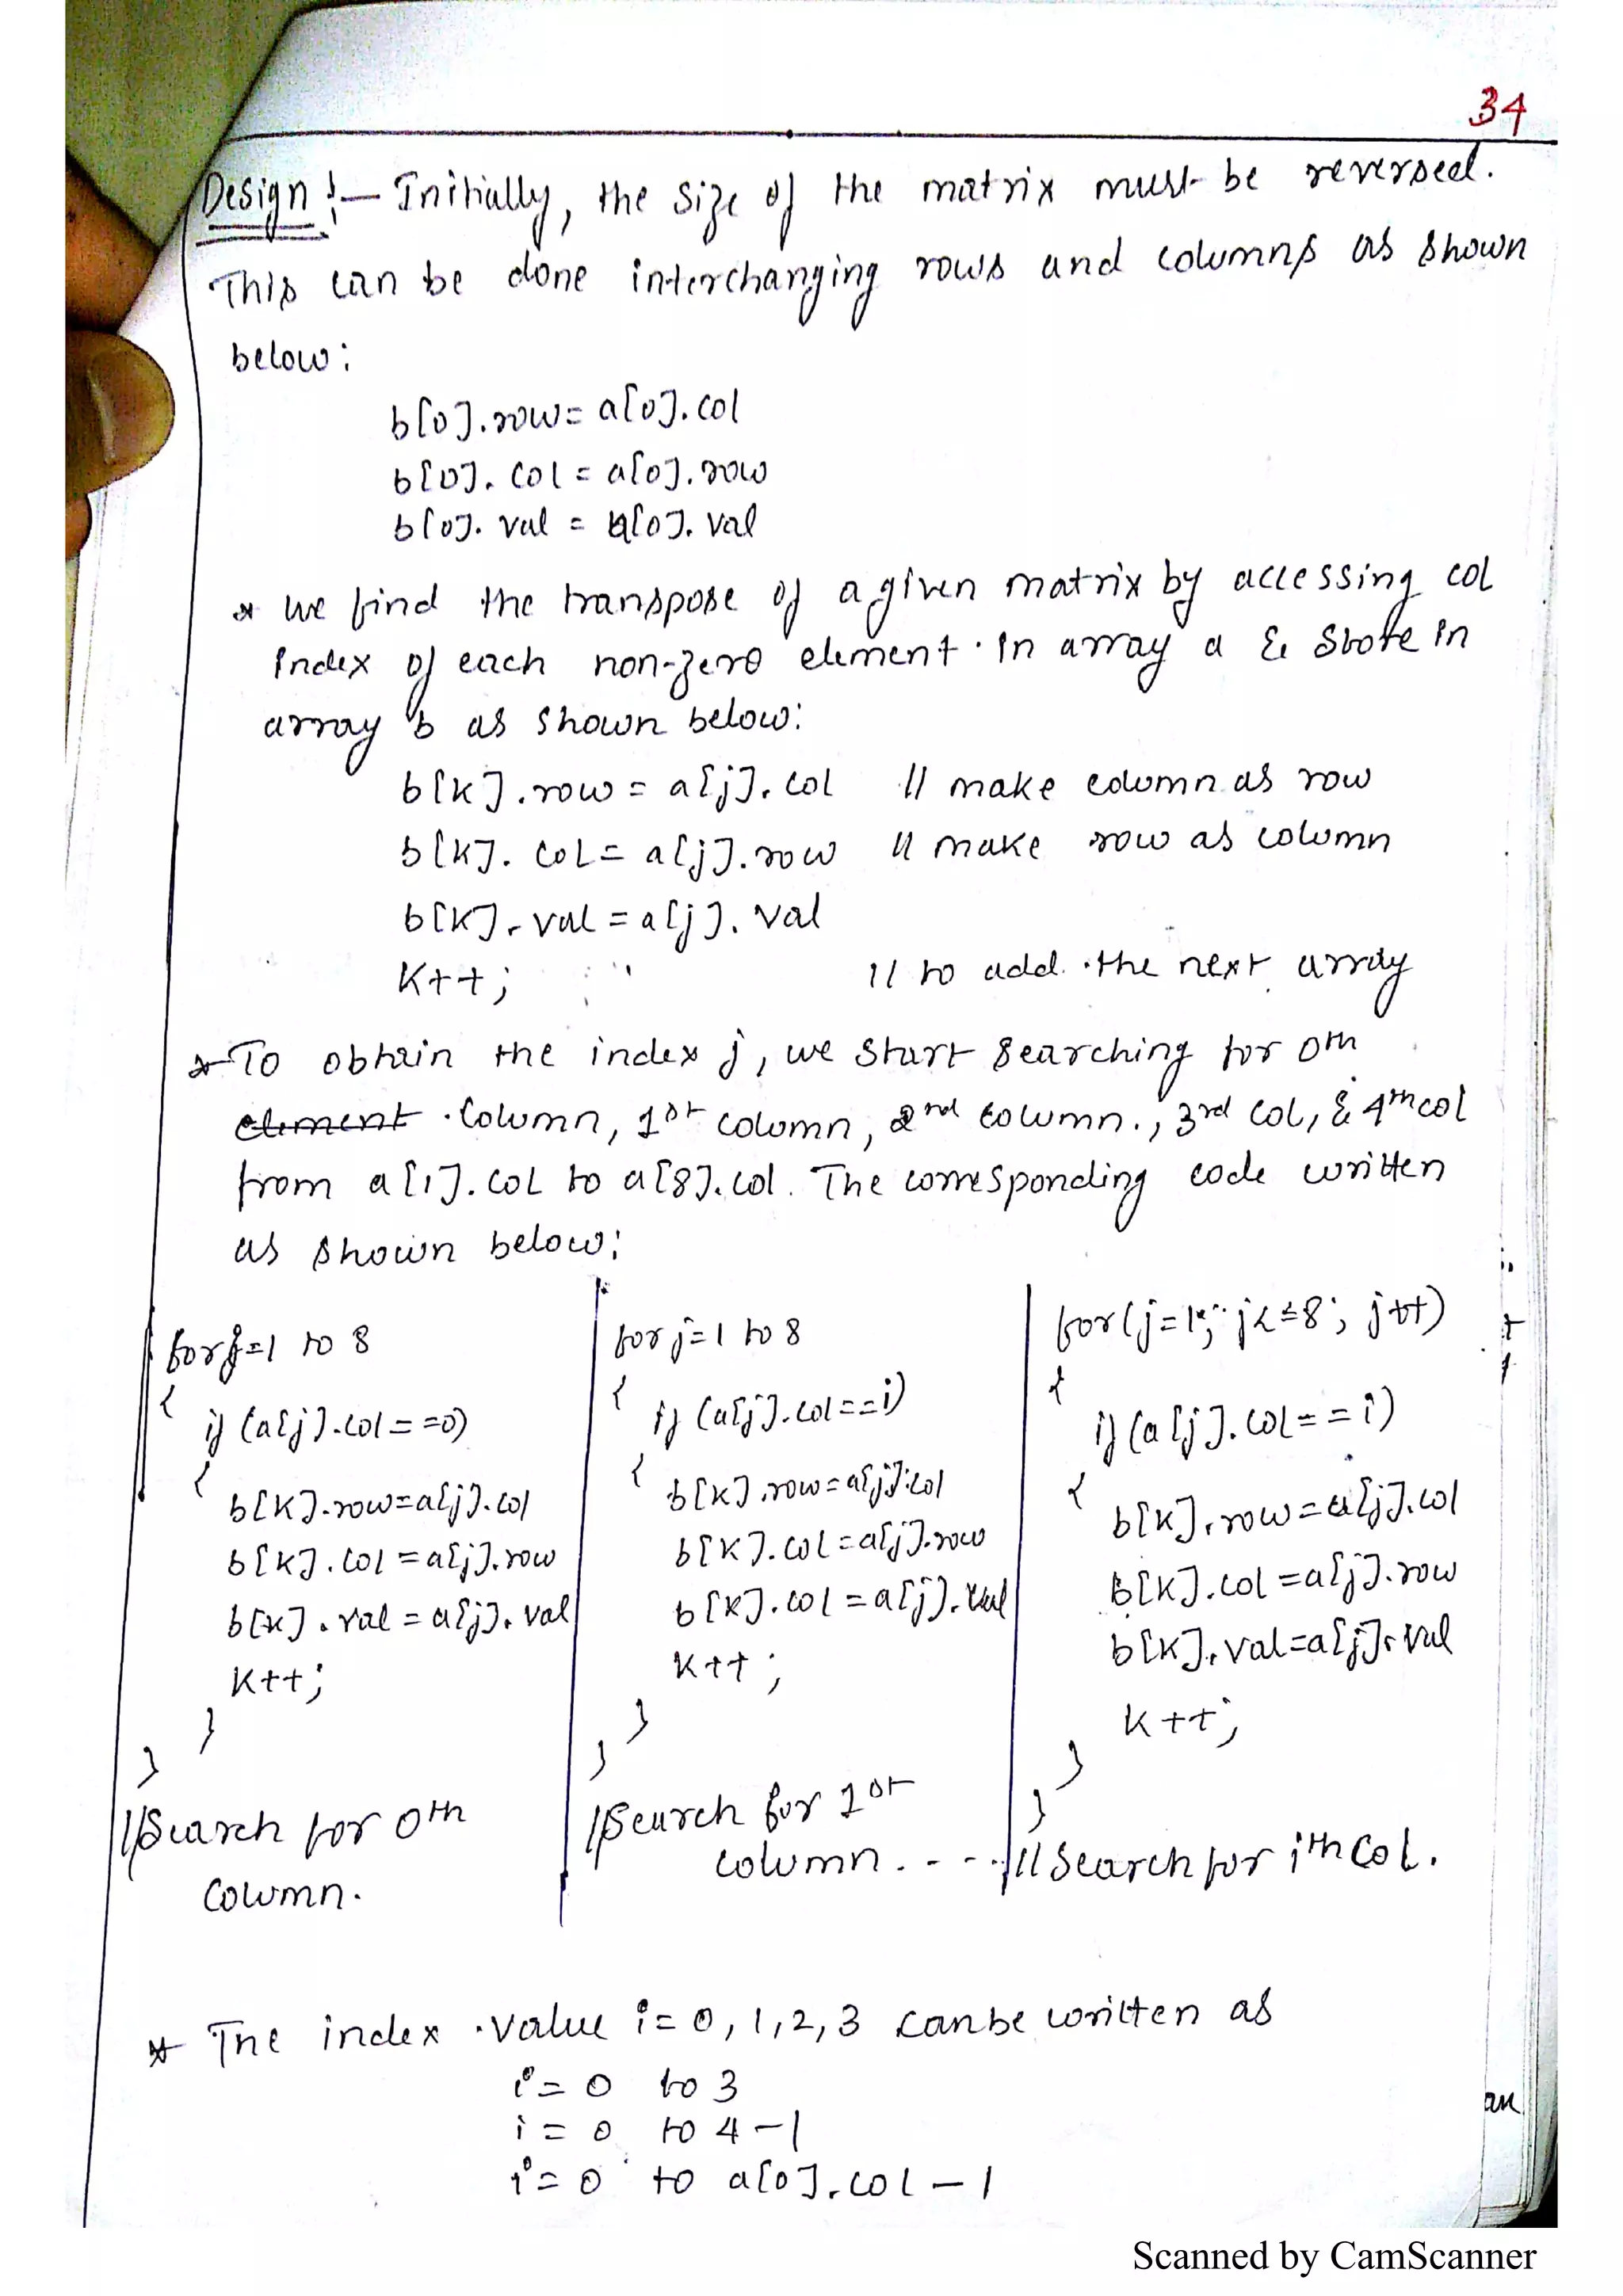 34
Design :- Initially, the size of the matrix must be reversed.
This can be done interchanging rows and columns as shown
below:
b[0].row = a[0].col
b[0]. col = a[0].row
b[0]. val = a[0]. val
* we find the transpose of a given matrix by accessing col
index of each non-zero element in array a & store in
array b as shown below:
b[k].row = a[j].col // make column as row
b[k]. col = a[j].row // make row as column
b[k]. val = a[j]. val
k++; // to add the next array
* To obtain the index j, we start searching for 0th
element column, 1st column, 2nd column., 3rd col, & 4th col
from a[1].col to a[8].col. The corresponding code written
as shown below:
for j=1 to 8
{
if (a[j].col==0)
{
b[k].row=a[j].col
b[k].col=a[j].row
b[k].val=a[j].val
k++;
}
}
//Search for 0th
column.
for j=1 to 8
{
if (a[j].col==i)
{
b[k].row=a[j].col
b[k].col=a[j].row
b[k].col=a[j].val
k++;
}
}
//Search for 1st
column. - - -
for(j=1; j<=8; j++)
{
if (a[j].col==i)
{
b[k].row=a[j].col
b[k].col=a[j].row
b[k].val=a[j].val
k++;
}
}
//Search for ith col.
* The index value i=0,1,2,3 can be written as
i=0 to 3
i=0 to 4-1
i=0 to a[0].col-1
Scanned by CamScanner